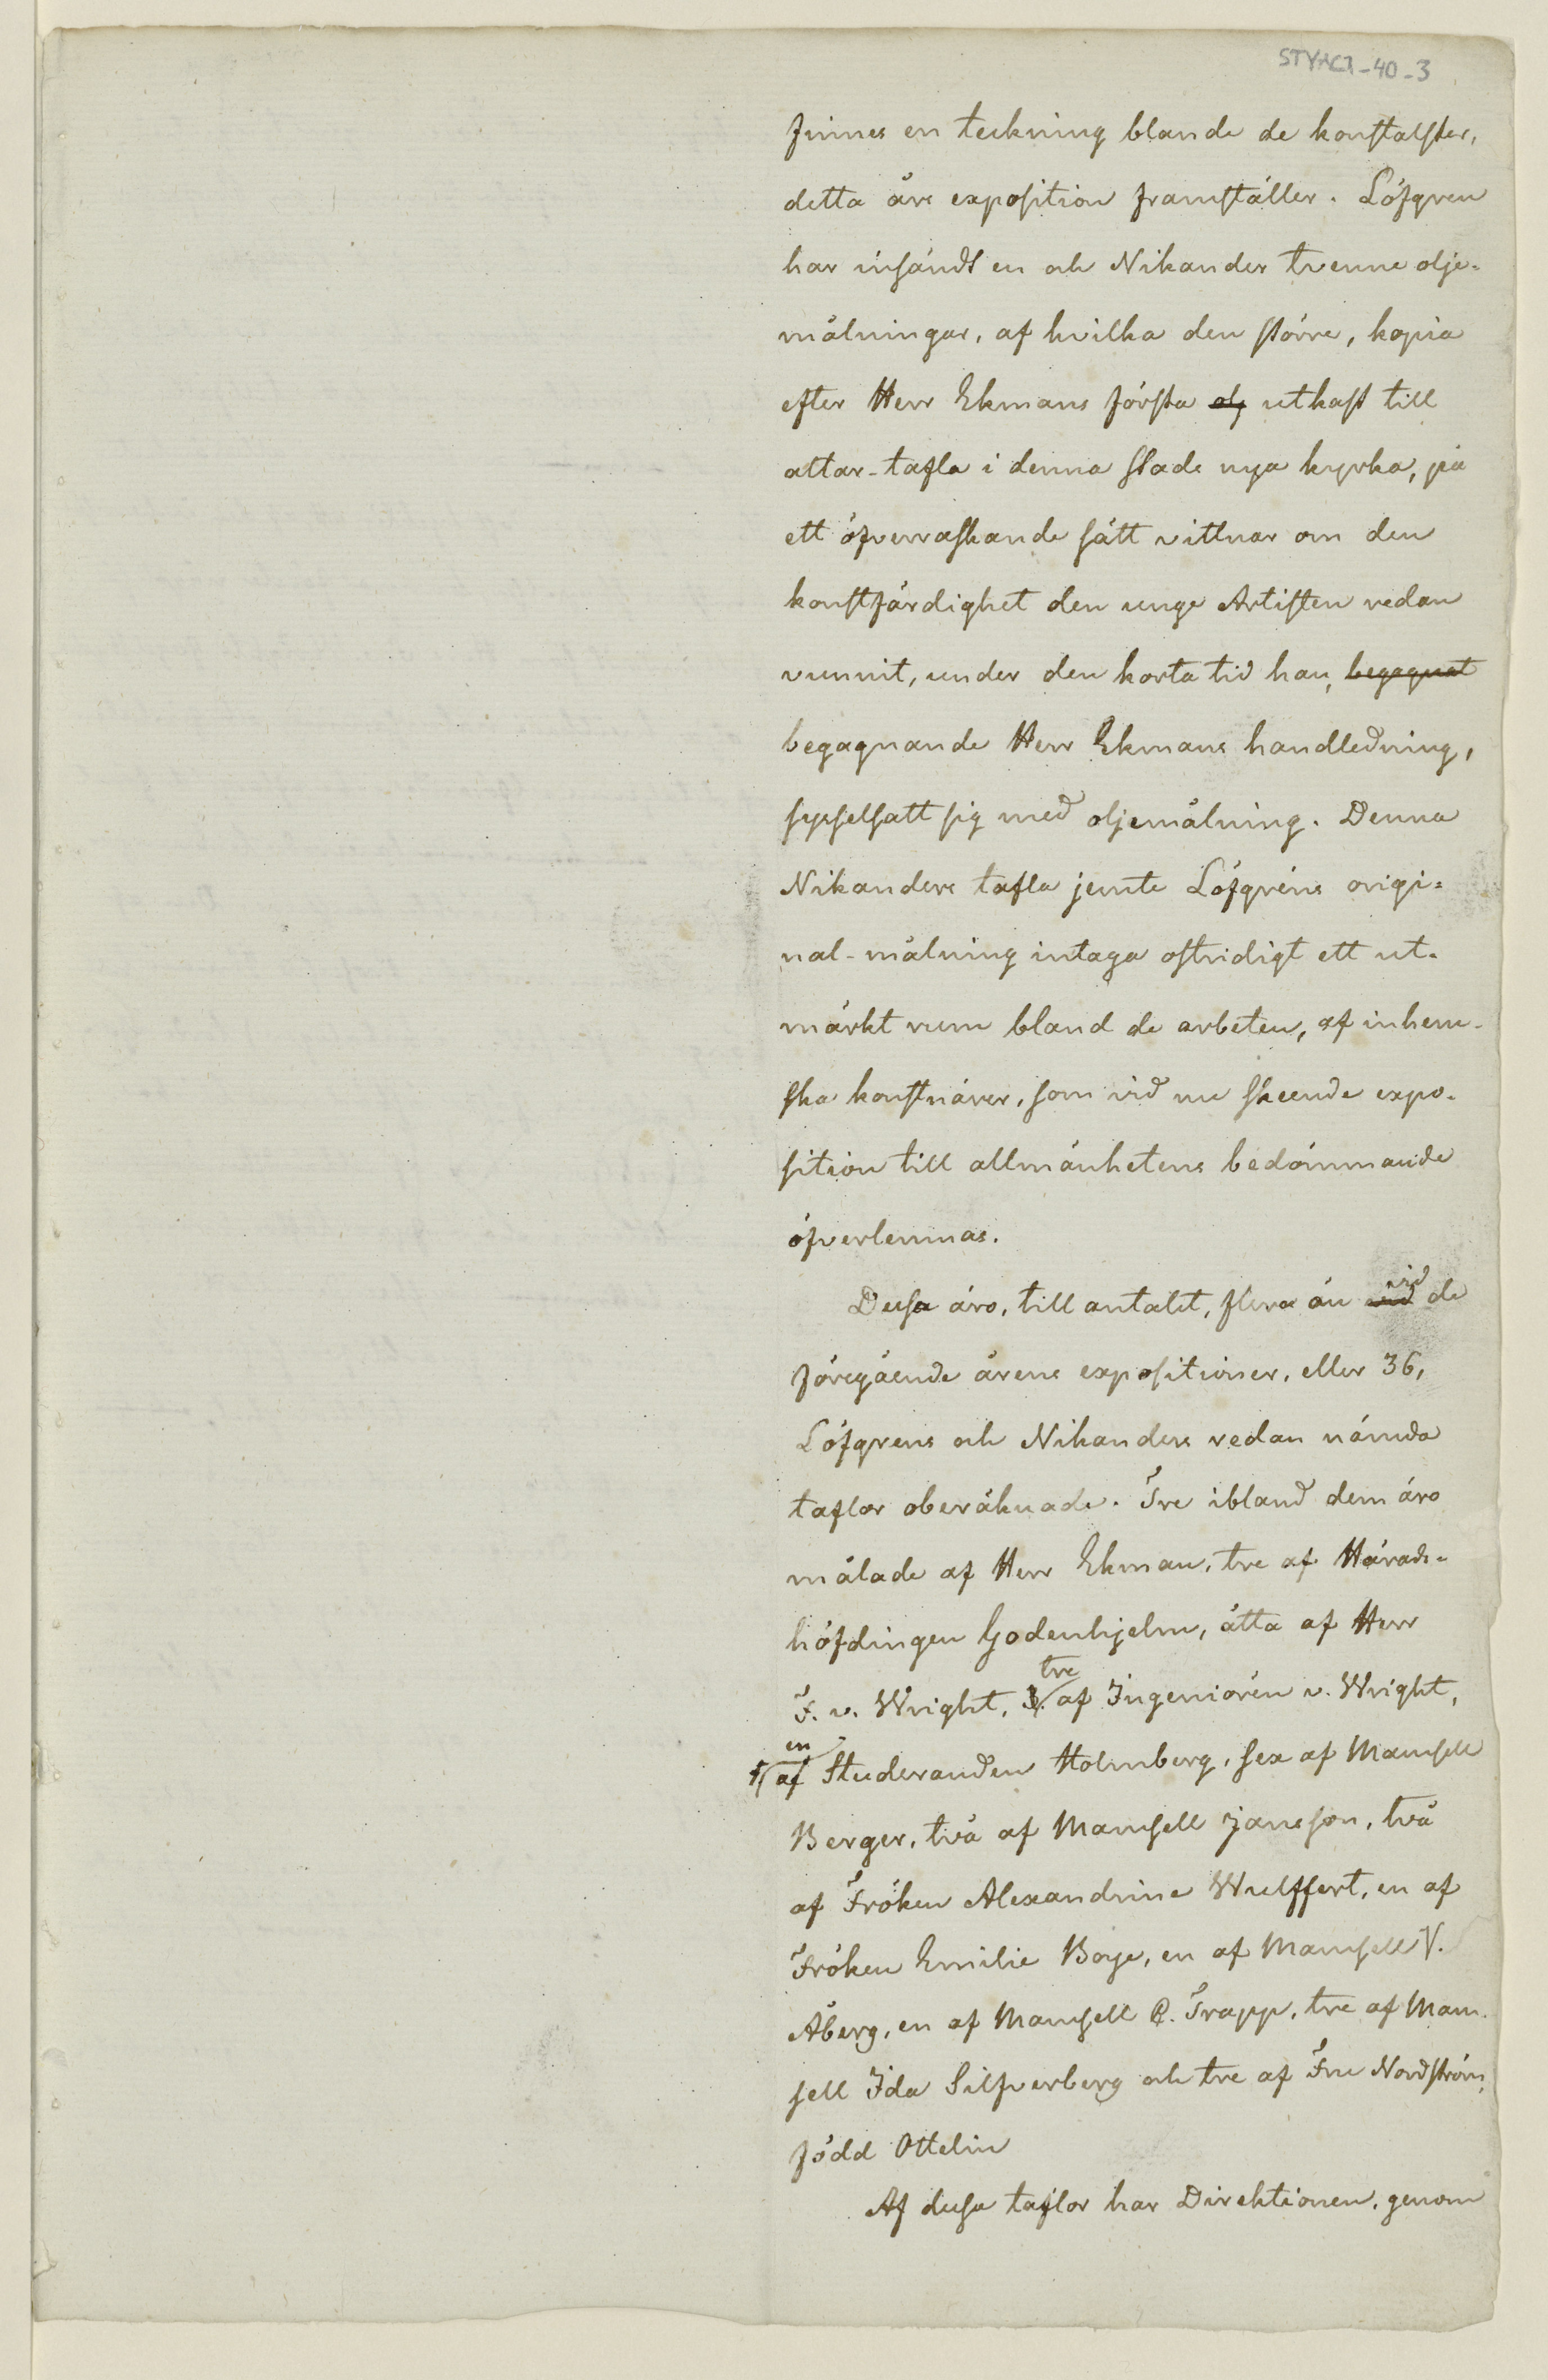 STYACI-40-3
finnes en teckning blande de konstalster,
detta års exposition framställer. Löfgren
har insändt en och Nikander tvenne olje-
målningar, af hvilka den större, kopia
efter Herr Ekmans första olj utkast till
altar-tafla i denna stads nya kyrka, på
ett öfverraskande sätt vittnar om den
konstfärdighet den unge Artisten redan
vunnit, under den korta tid han, begagnat
begagnande Herr Ekmans handledning,
sysselsatt sig med oljemålning. Denna
Nikanders tafla jemte Löfgréns origi-
nal-målning intaga ostridigt ett ut-
märkt rum bland de arbeten, af inhem-
ska konstnärer, som vid nu skeende expo-
sition till allmänhetens bedömmande
öfverlemnas.
Dessa äro, till antalet, flera än vid vid de
föregående årens expositioner, eller 36,
Löfgrens och Nikanders redan nämda
taflor oberäknade. Tre ibland dem äro
målade af Herr Ekman, tre af Härads-
höfdingen Godenhjelm, åtta af Herr
F. v. Wright, 3. tre af Ingeniören v. Wright,
1 en af Studeranden Holmberg, sex af Mamsell
Berger, två af Mamsell Jansson, två
af Fröken Alexandrine Wulffert, en af
Fröken Emilie Boye, en af Mamsell V.
Åberg, en af Mamsell C. Trapp, tre af Mam-
sell Ida Silfverberg och tre af Fru Nordström,
född Ottelin
Af dessa taflor har Direktionen, genom